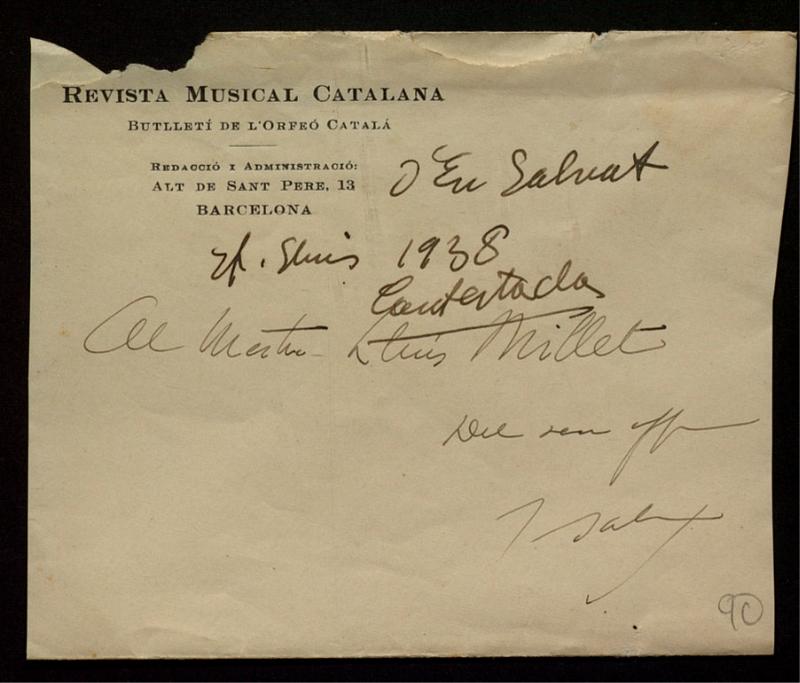 REVISTA MUSICAL CATALANA
BUTLLETÍ DE L'ORFEÓ CATALÁ
REDACCIÓ I ADMINISTRACIÓ:
ALT DE SANT PERE, 13
BARCELONA
D'En Salvat
St. Lluis 1938
Contestada
Al Mestre Lluis Millet
Del seu
90